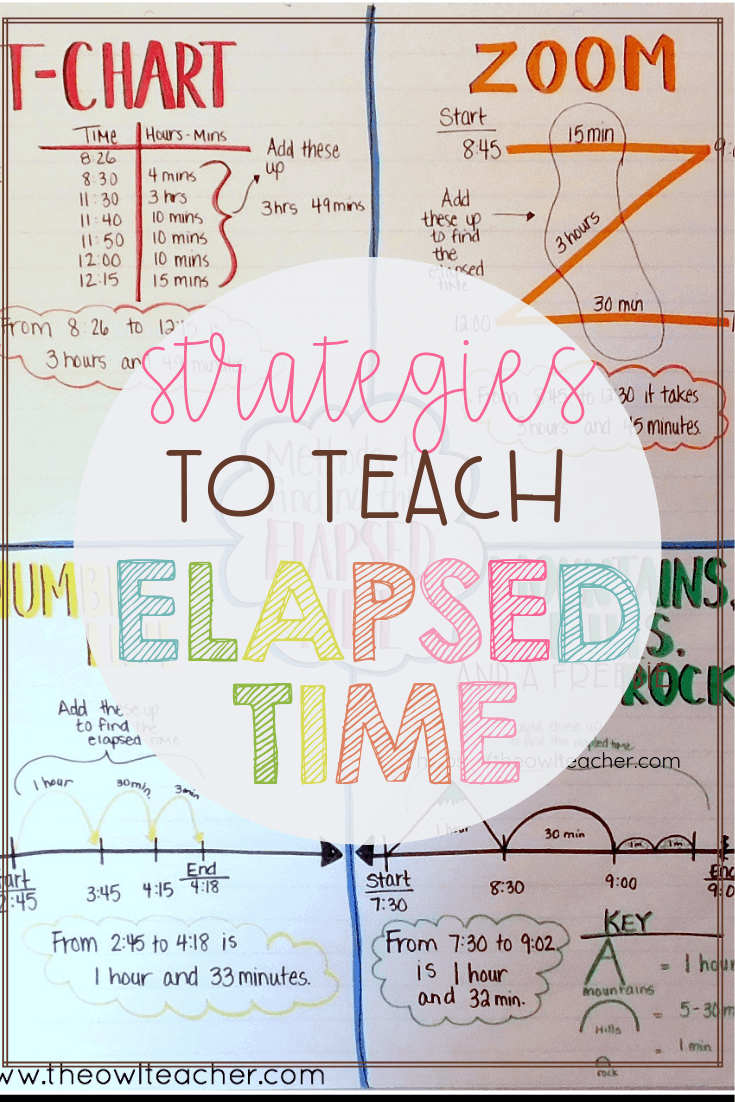 T-CHART
TIME Hours-Mins
8:26
8:30 4 mins
11:30 3 hrs
11:40 10 mins
11:50 10 mins
12:00 10 mins
12:15 15 mins
Add these
up
3hrs 49mins
From 8:26 to 12:15 is
3 hours and 49 minutes
ZOOM
Start
8:45
15 min
Add
these up
to find
the
elapsed
time
3 hours
12:00
30 min
From 8:45 to 12:30 it takes
3 hours and 45 minutes.
strategies
TO TEACH
ELAPSED
TIME
Methods to
finding the
ELAPSED
TIME
AND A FREEBIE
theowlteacher.com
Add these up
to find the
elapsed time
1 hour
30 min
3 min
2:45
3:45
4:15
End
4:18
From 2:45 to 4:18 is
1 hour and 33 minutes.
MOUNTAINS,
ROCK
Add these up
to find the elapsed time
1 hour
30 min
1m
1m
Start
7:30
8:30
9:00
From 7:30 to 9:02
is 1 hour
and 32 min.
KEY
mountains = 1 hour
Hills = 5-30 m
rock = 1 min
www.theowlteacher.com